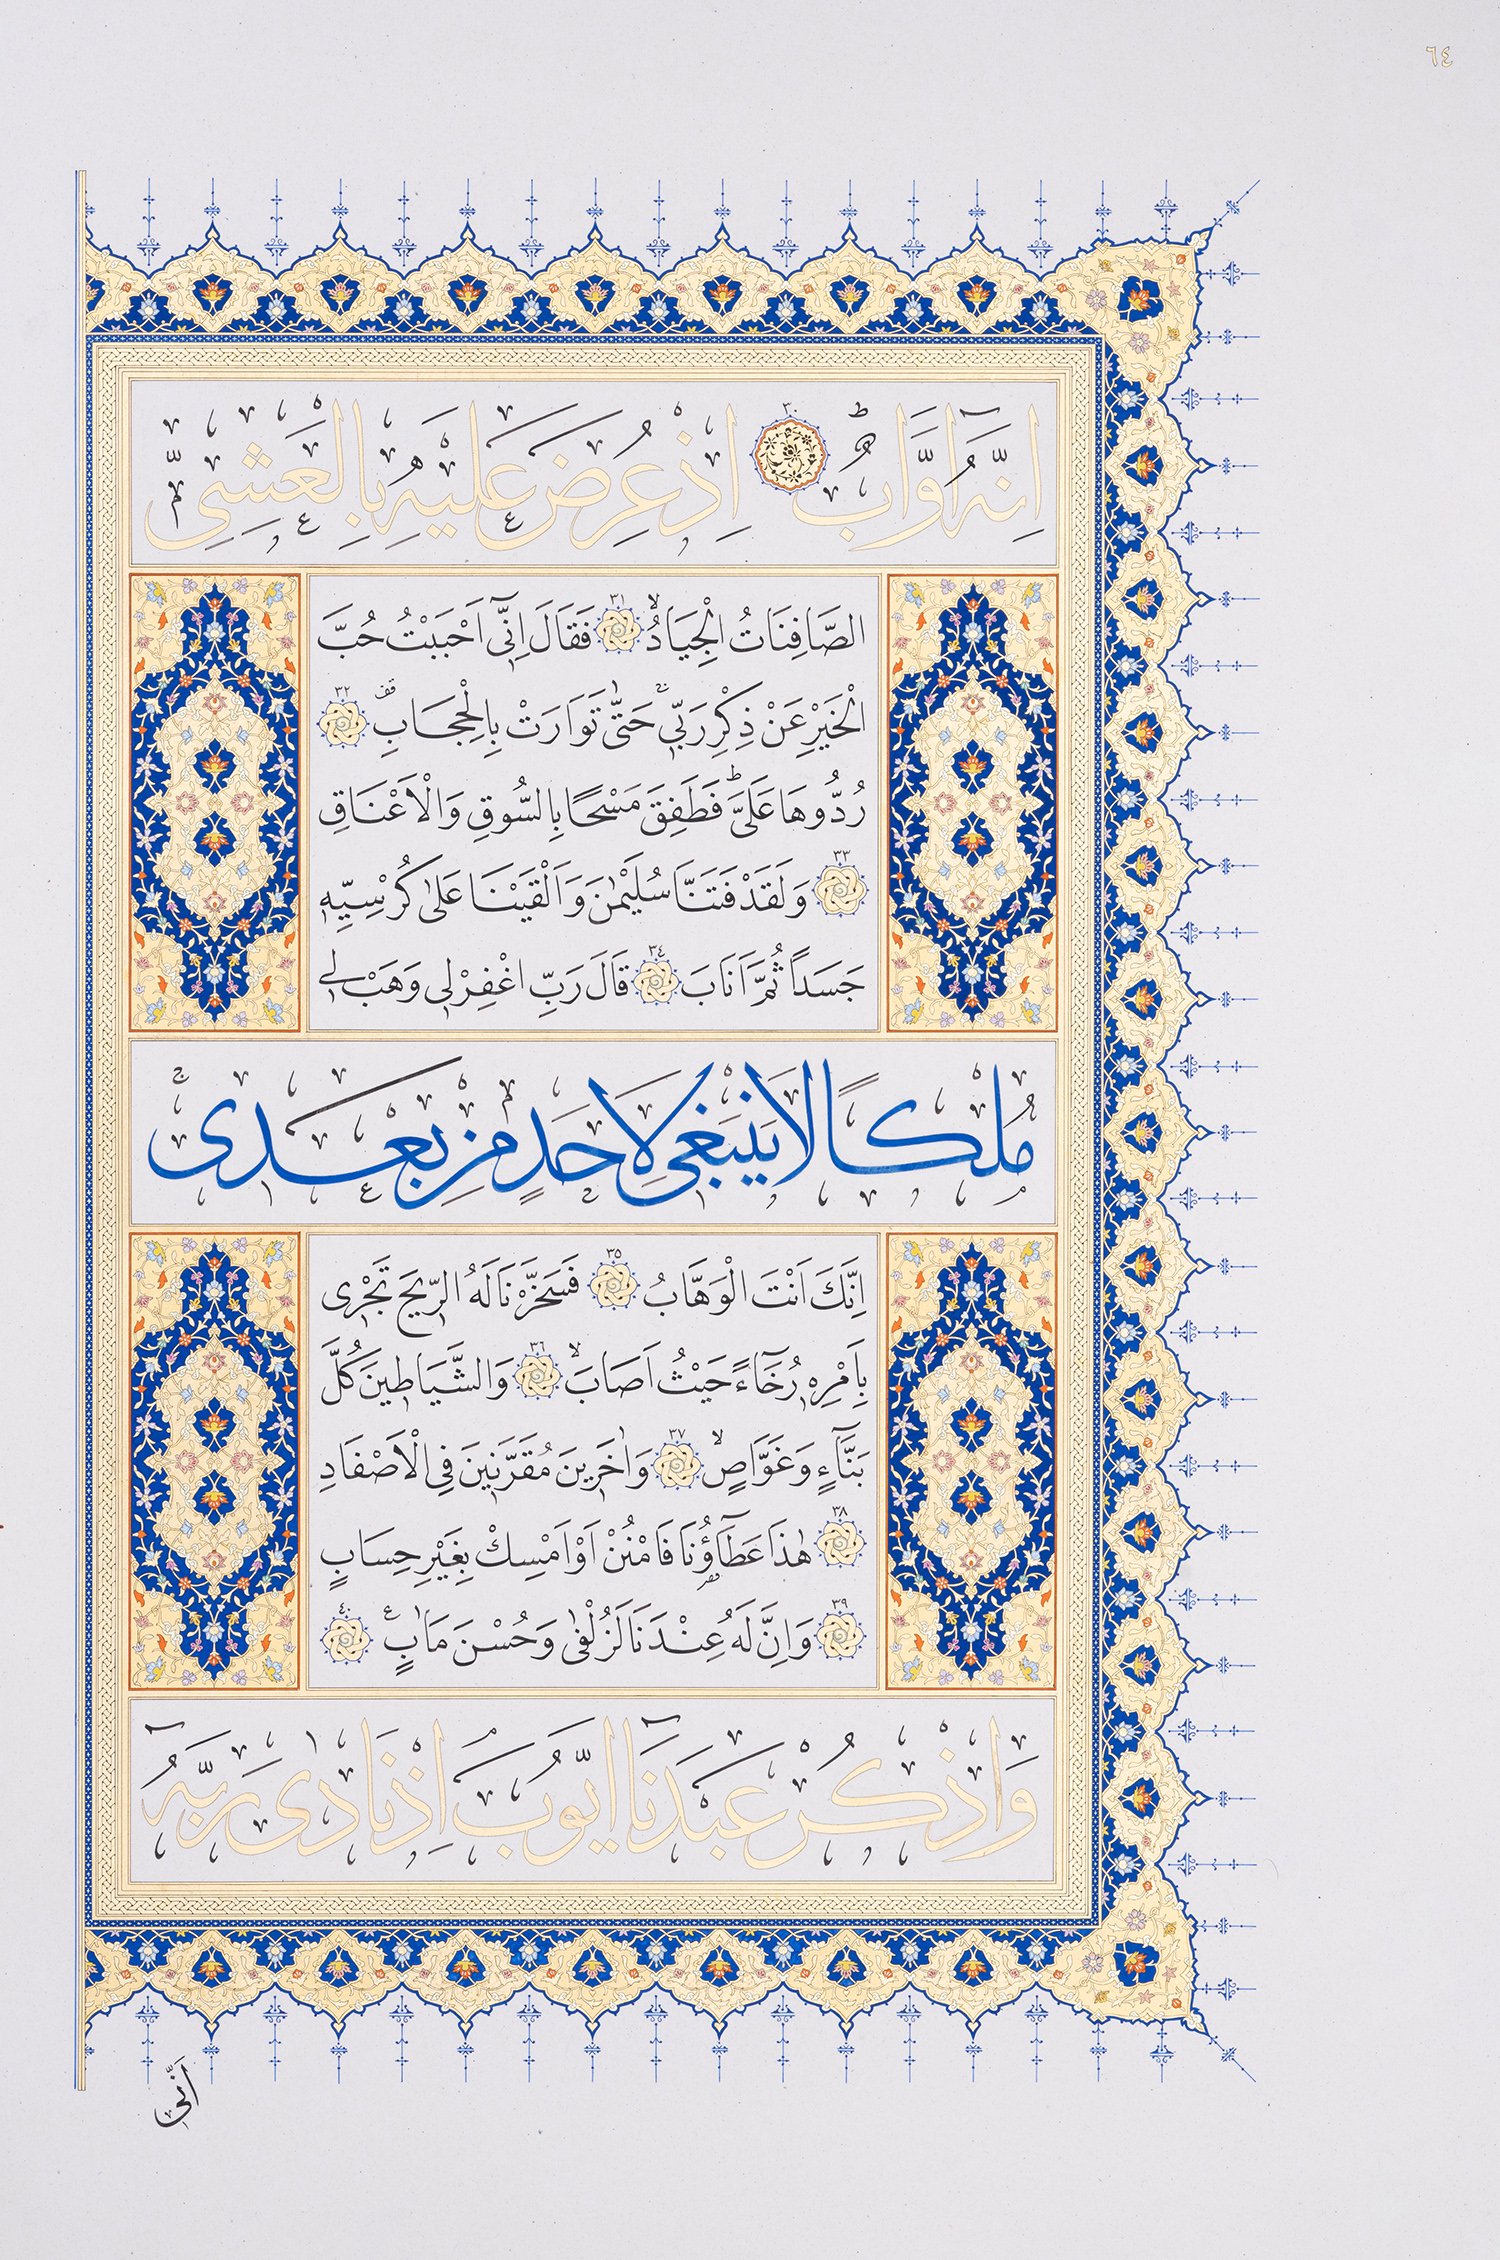 ٦٤
اِنَّهُٓ اَوَّابٌ ٣٠ اِذْ عُرِضَ عَلَيْهِ بِالْعَشِيِّ
الصَّافِنَاتُ الْجِيَادُۙ ٣١ فَقَالَ اِنّ۪ٓي اَحْبَبْتُ حُبَّ
الْخَيْرِ عَنْ ذِكْرِ رَبّ۪يۚ حَتّٰى تَوَارَتْ بِالْحِجَابِ ٣٢
رُدُّوهَا عَلَيَّۜ فَطَفِقَ مَسْحًا بِالسُّوقِ وَالْاَعْنَاقِ
٣٣ وَلَقَدْ فَتَنَّا سُلَيْمٰنَ وَاَلْقَيْنَا عَلٰى كُرْسِيِّه۪
جَسَدًا ثُمَّ اَنَابَ ٣٤ قَالَ رَبِّ اغْفِرْ ل۪ي وَهَبْ ل۪ي
مُلْكًا لَا يَنْبَغ۪ي لِاَحَدٍ مِنْ بَعْد۪يۚ
اِنَّكَ اَنْتَ الْوَهَّابُ ٣٥ فَسَخَّرْنَا لَهُ الرّ۪يحَ تَجْر۪ي
بِاَمْرِه۪ رُخَٓاءً حَيْثُ اَصَابَۙ ٣٦ وَالشَّيَاط۪ينَ كُلَّ
بَنَّٓاءٍ وَغَوَّاصٍۙ ٣٧ وَاٰخَر۪ينَ مُقَرَّن۪ينَ فِي الْاَصْفَادِ
٣٨ هٰذَا عَطَٓاؤُ۬نَا فَامْنُنْ اَوْ اَمْسِكْ بِغَيْرِ حِسَابٍ
٣٩ وَاِنَّ لَهُ عِنْدَنَا لَزُلْفٰى وَحُسْنَ مَاٰبٍ ٤٠
وَاذْكُرْ عَبْدَنَٓا اَيُّوبَۢ اِذْ نَادٰى رَبَّهُٓ
اَنّ۪ي